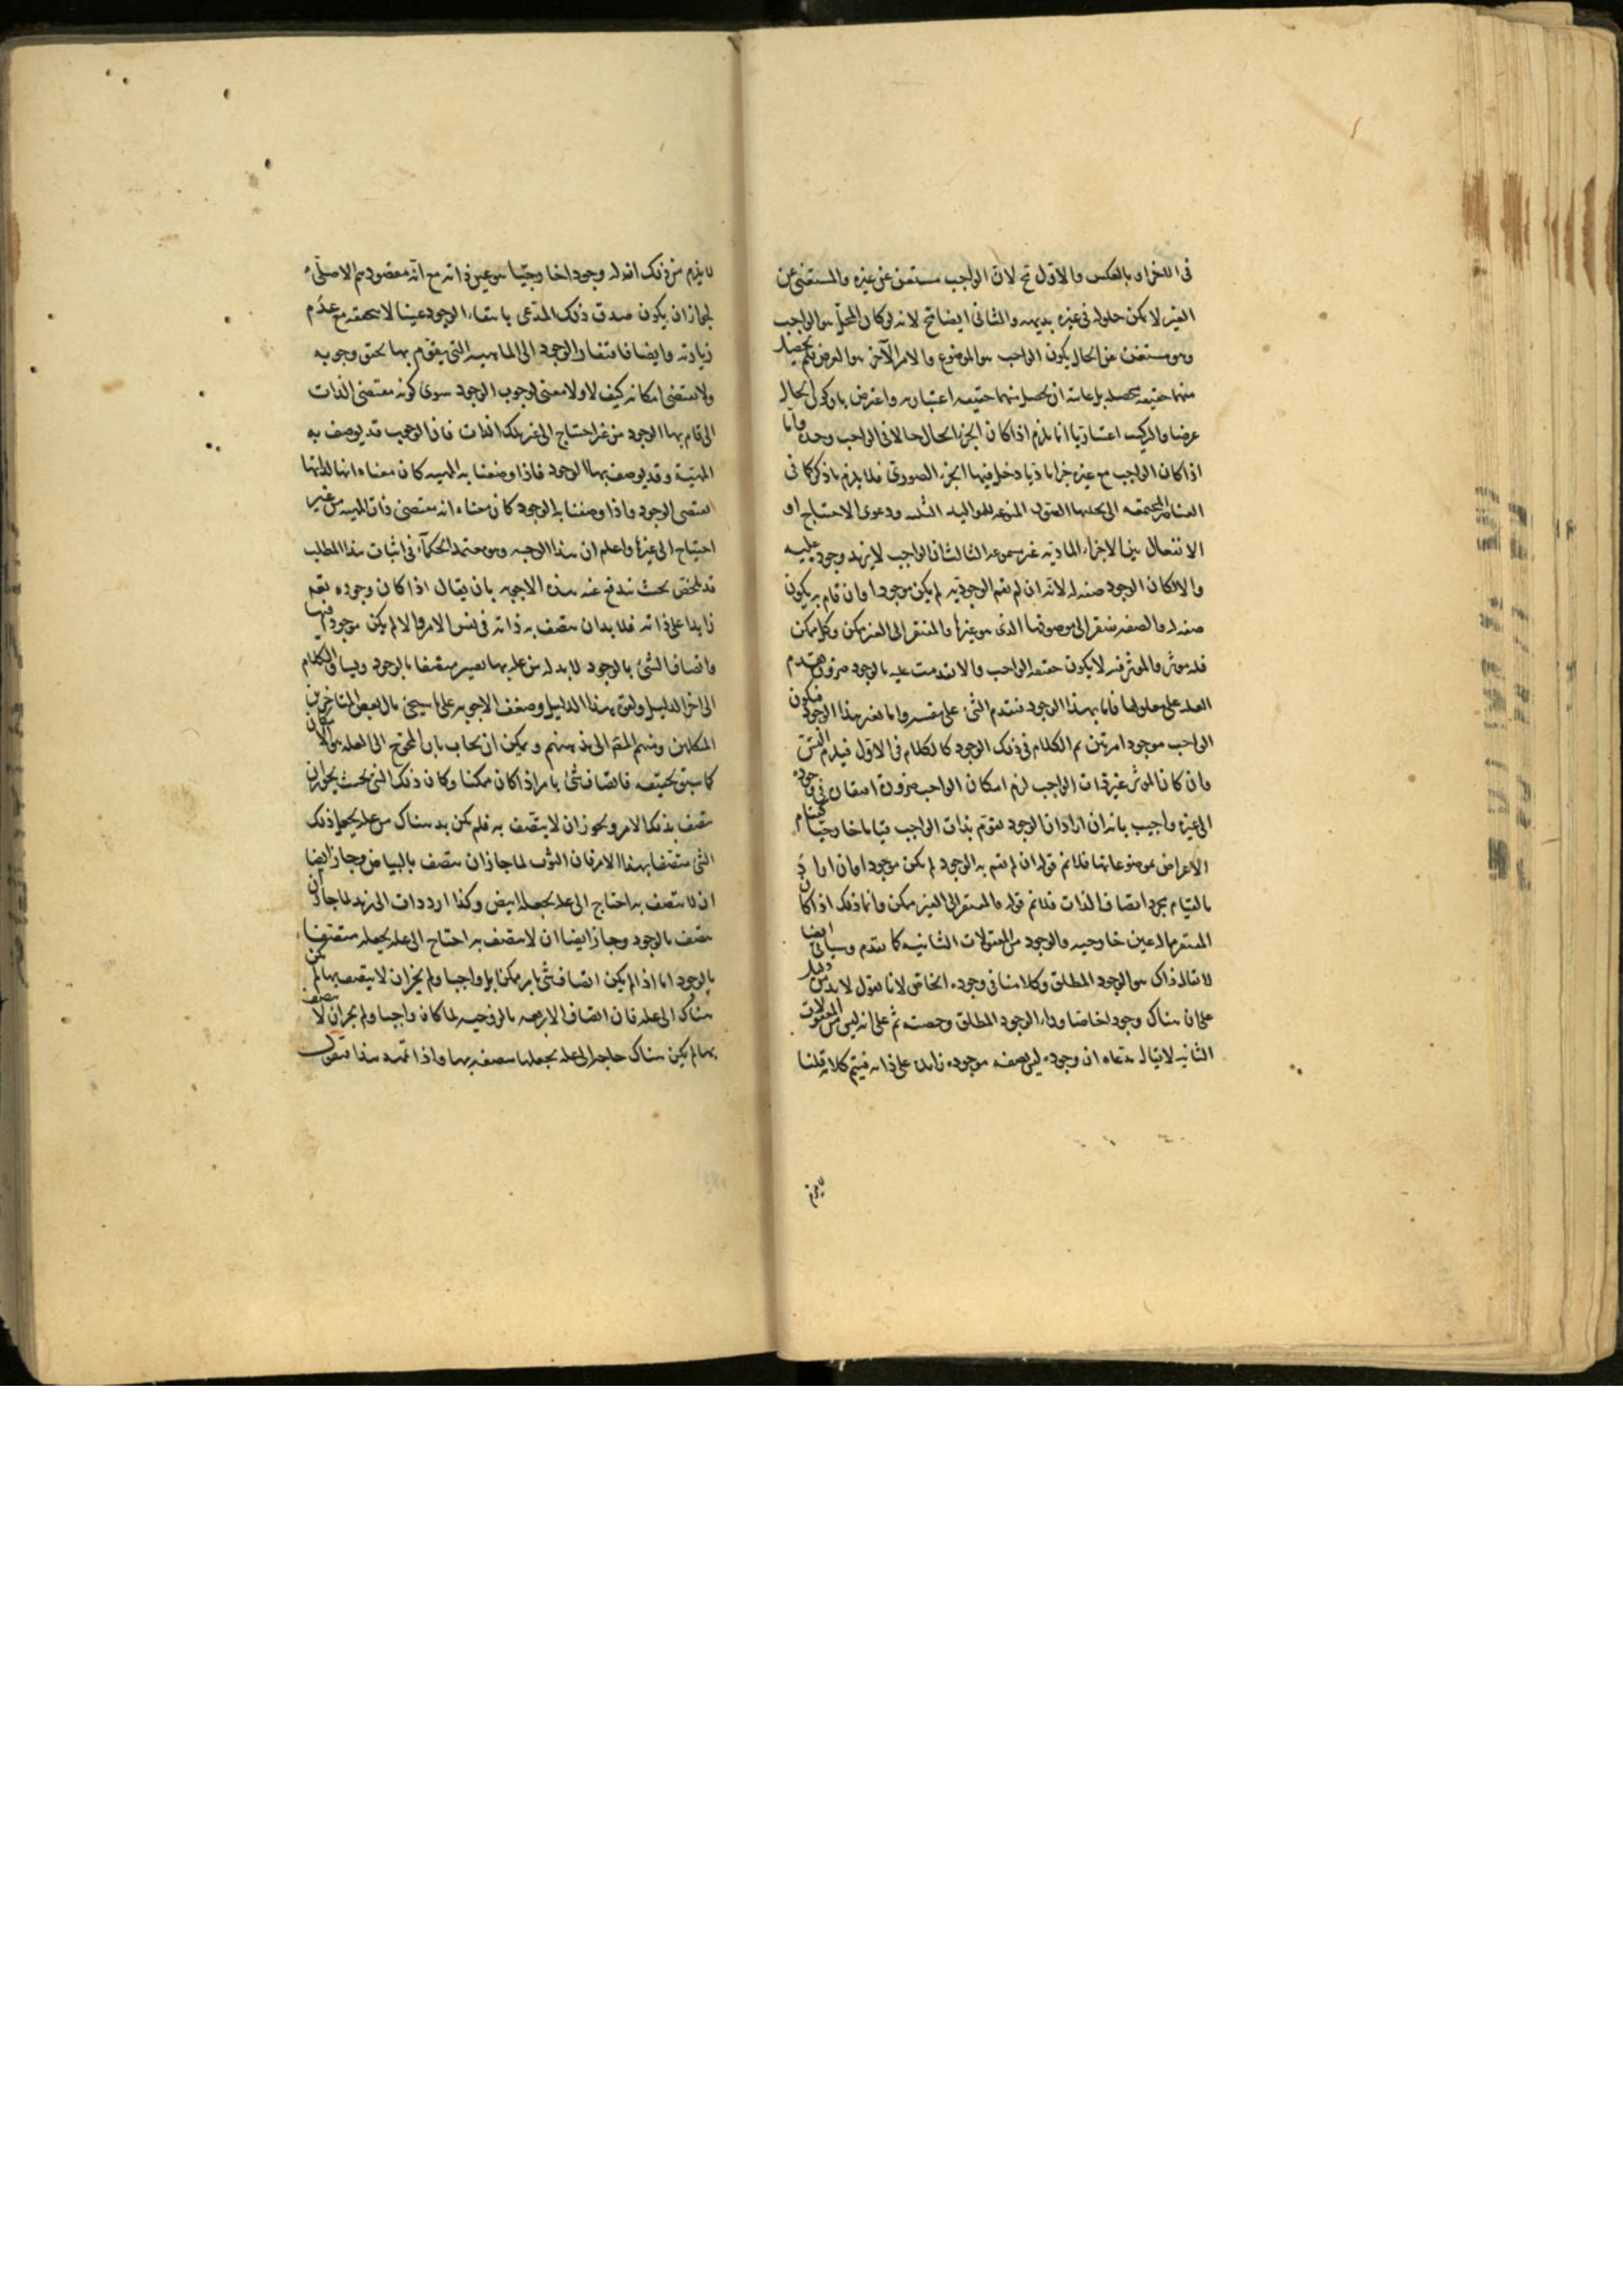 فى الاخر او بالعكس والاول مح لان الواجب مستغن عن غيره والمستغنى عن
الغير لا يمكن حلوله فى غيره بديهة والثانى ايضا مح لانه لو كان المحل هو الواجب
وهو مستغن عن الحال يكون الواجب هو الموضوع والامر الآخر هو العرض فلم يحصل
منهما حقيقة متحصلة بل غايته ان يحصل منهما حقيقة اعتبارية واعترض بان كون الحال
عرضا والتركيب اعتباريا انما يلزم اذا كان الجزء الحال حالا فى الواجب وحده واما
اذا كان الواجب مع غيره جزءا ماديا دخل فيهما الجزء الصورى فلا يلزم ما ذكر كما فى
العناصر المجتمعة التى يحلها الصور المنوعة للمواليد الثلثة ودعوى الاحتياج او
الانفعال بين الاجزاء المادية غير مسموعة الثالث ان الواجب لا يزيد وجوده عليه
والا لكان الوجود صفة له لانه ان لم يقم الوجود به لم يكن موجودا وان قام به يكون
صفة له والصفة تفتقر الى موصوفها الذى هو غيرها والمفتقر الى الغير ممكن وكل ممكن
فله مؤثر والمؤثر فيه لا يكون حقيقة الواجب والا تقدمت عليه بالوجود ضرورة تقدم
العلة على معلولها فاما بهذا الوجود فتقدم الشئ على نفسه واما بغير هذا الوجود فيكون
الواجب موجودا مرتين ثم الكلام فى ذلك الوجود كالكلام فى الاول فيلزم التس
وان كان المؤثر غير ذات الواجب لزم امكان الواجب ضرورة افتقاره فى وجوده
الى غيره واجيب بانه ان اراد ان الوجود يقوم بذات الواجب قياما خارجيا كقيام
الاعراض بموضوعاتها فلانم قوله ان لم يقم به الوجود لم يكن موجودا وان اراد
بالقيام مجرد اتصاف الذات فلانم قوله والمفتقر الى الغير ممكن وانما ذلك اذا كان
المفتقر مما له عين خارجية والوجود من المعقولات الثانية كما تقدم وسياتى ايضا
لا يقال ذاك هو الوجود المطلق وكلامنا فى وجوده الخاص لانا نقول لا بد من دليل
على ان هناك وجودا خاصا وراء الوجود المطلق وحصته ثم على انه ليس من المعقولات
الثانية لا يقال مدعاه ان وجوده ليس صفة موجودة زايدة على ذاته فيتم كلامه قلنا
لا يلزم
لا يلزم من ذلك ان له وجودا خارجيا هو عين ذاته مع انه مقصودهم الاصلى
لجواز ان يكون صدق ذلك المدعى بانتفاء الوجود عينا لا بتحققه مع عدم
زيادته وايضا فافتقار الوجود الى الماهية التى يقوم بها يحقق وجوبه
ولا يقتضى امكانه كيف لا ولا معنى لوجوب الوجود سوى كونه مقتضى الذات
التى قام بها الوجود من غير احتياج الى غير تلك الذات فان الوجوب قد يوصف به
الماهية وقد يوصف بها الوجود فاذا وصفنا به الماهية كان معناه انها لذاتها
اقتضى الوجود واذا وصفنا به الوجود كان معناه انه مقتضى ذات الماهية من غير
احتياج الى غيرها واعلم ان هذا الوجه وهو معتمد الحكماء فى اثبات هذا المطلب
قد يلخص بحيث يندفع عنه هذه الاجوبة بان يقال اذا كان وجوده تعم
زايدا على ذاته فلا بد ان يتصف به ذاته فى نفس الامر والا لم يكن موجودا فيها
واتصاف الشئ بالوجود لا بد له من علة بها يصير متصفا بالوجود ويساق الكلام
الى اخر الدليل ولقوة هذا الدليل وضعف الاجوبة على ما سيجئ مال بعض المتاخرين
المتكلمين ومنهم المصر الى مذهبهم ويمكن ان يجاب بان المحوج الى العلة هو الامكان
كما سبق تحقيقه فاتصاف شئ بامر اذا كان ممكنا وكان ذلك الشئ بحيث يجوز ان
يتصف بذلك الامر ويجوز ان لا يتصف به فلم يكن بد هناك من علة يجعل ذلك
الشئ متصفا بهذا الامر فان الثوب لما جاز ان يتصف بالبياض وجاز ايضا
ان لا يتصف به احتاج الى علة يجعله ابيض وكذا اردد ذات الى زيد لما جاز ان
يتصف بالوجود وجاز ايضا ان لا يتصف به احتاج الى علة يجعله متصفا
بالوجود اما اذا لم يكن اتصاف شئ بامر ممكنا بل واجبا ولم يجز ان لا يتصف بها لم يكن
هناك الى علة فان اتصاف الاربعة بالزوجية لما كان واجبا ولم يجز ان لا يتصف
بها لم يكن هناك حاجة الى علة يجعلها متصفة بها واذا تمهد هذا فنقول